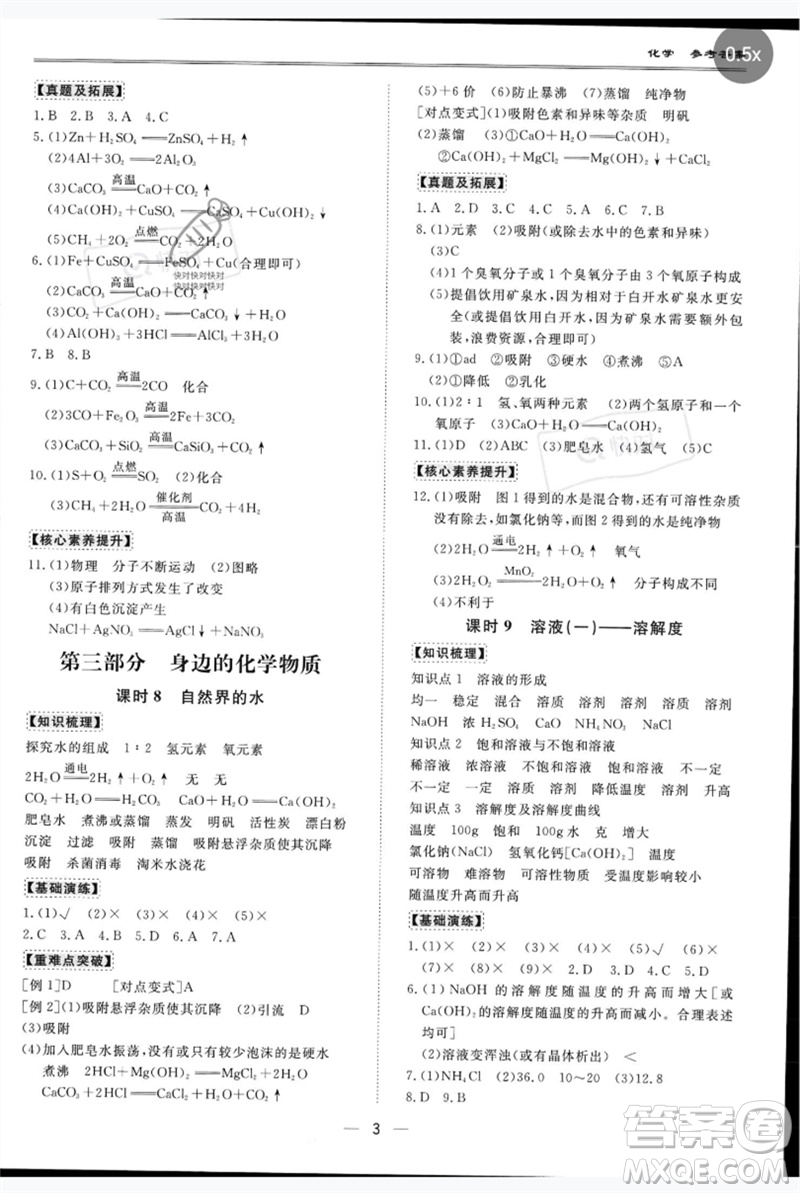 化学 参考答案
0.5x
【真题及拓展】
1.B 2.B 3.A 4.C
5.(1)Zn+H₂SO₄══ZnSO₄+H₂↑
(2)4Al+3O₂══2Al₂O₃
(3)CaCO₃ 高温══CaO+CO₂↑
(4)Ca(OH)₂+CuSO₄══CaSO₄+Cu(OH)₂↓
(5)CH₄+2O₂ 点燃══CO₂+2H₂O
6.(1)Fe+CuSO₄══FeSO₄+Cu(合理即可)
(2)CaCO₃ 高温══CaO+CO₂↑
(3)CO₂+H₂O══H₂CO₃
(4)Al(OH)₃+3HCl══AlCl₃+3H₂O
7.B 8.B
9.(1)C+CO₂ 高温══2CO 化合
(2)3CO+Fe₂O₃ 高温══2Fe+3CO₂
(3)CaCO₃+SiO₂ 高温══CaSiO₃+CO₂↑
10.(1)S+O₂ 点燃══SO₂ (2)化合
(3)CH₄+2H₂O 催化剂══高温 CO₂+4H₂
【核心素养提升】
11.(1)物理 分子不断运动 (2)图略
(3)原子排列方式发生了改变
(4)有白色沉淀产生
NaCl+AgNO₃══AgCl↓+NaNO₃
第三部分 身边的化学物质
课时8 自然界的水
【知识梳理】
探究水的组成 1∶2 氢元素 氧元素
2H₂O 通电══2H₂↑+O₂↑ 无 无
CO₂+H₂O══H₂CO₃ CaO+H₂O══Ca(OH)₂
肥皂水 煮沸或蒸馏 蒸发 明矾 活性炭 漂白粉
沉淀 过滤 吸附 蒸馏 吸附悬浮杂质使其沉降
吸附 杀菌消毒 淘米水浇花
【基础演练】
1.(1)√ (2)× (3)× (4)× (5)×
2.C 3.A 4.B 5.C 6.D 7.A
【重难点突破】
[例1]D [对点变式]A
[例2](1)吸附悬浮杂质使其沉降 (2)引流 D
(3)吸附
(4)加入肥皂水振荡，没有或有较少泡沫的是硬水
煮沸 2HCl+Mg(OH)₂══MgCl₂+2H₂O
CaCO₃+2HCl══CaCl₂+H₂O+CO₂↑
(5)+6价 (6)防止暴沸 (7)蒸馏 纯净物
[对点变式](1)吸附色素和异味等杂质 明矾
(2)蒸馏 (3)①CaO+H₂O══Ca(OH)₂
②Ca(OH)₂+MgCl₂══Mg(OH)₂↓+CaCl₂
【真题及拓展】
1.A 2.D 3.A 4.D 5.C 6.C 7.B
8.(1)元素 (2)吸附(或除去水中的色素和异味)
(3)C
(4)1个臭氧分子或1个臭氧分子由3个氧原子构成
(5)提倡饮用矿泉水，因为相比于白开水矿泉水更安
全(或提倡饮用白开水，因为矿泉水需要额外加工包
装，浪费资源，合理即可)
9.(1)①ad ②吸附 ③硬水 ④煮沸 ⑤A
(2)①降低 ②乳化
10.(1)2∶1 氢、氧两种元素 (2)两个氢原子和一个
氧原子 (3)2H₂O 通电══2H₂↑+O₂↑
11.(1)D (2)ABC (3)肥皂水 (4)氢气 (5)C
【核心素养提升】
12.(1)吸附 图1得到的水是混合物，还有可溶性杂质
没有除去，如氯化钠等，而图2得到的水是纯净物
(2)2H₂O 通电══2H₂↑+O₂↑ 氧气
(3)2H₂O₂ MnO₂══2H₂O+O₂↑ 分子构成不同
(4)不利于
课时9 溶液(一)——溶解度
【知识梳理】
知识点1 溶液的形成
均一 稳定 混合 溶质 溶剂 溶剂 溶质
NaOH 浓H₂SO₄ CaO NH₄NO₃ NaCl
知识点2 饱和溶液与不饱和溶液
稀溶液 浓溶液 不饱和溶液 饱和溶液 不一定
不一定 一定 溶质 溶剂 降低 溶质 溶剂 升高
知识点3 溶解度及溶解度曲线
温度 100g 饱和 100g水 克 增大
氯化钠(NaCl) 氢氧化钙[Ca(OH)₂] 温度
可溶物 难溶物 可溶物 易溶物 气体压强
随温度升高而升高 随温度升高而减小
【基础演练】
1.(1)× (2)× (3)× (4)× (5)√ (6)×
(7)× (8)× (9)× 2.D 3.C 4.D 5.C
6.(1)NaOH的溶解度随温度的升高而增大[或
Ca(OH)₂溶解度随温度的升高而减小。合理表述
均可]
(2)溶液变浑浊(或有晶体析出) <
7.(1)NH₄Cl (2)36.0 10~20 (3)12.8
8.D 9.B
3
快对快对快对
快对快对快对
答案圈
MXQE.COM